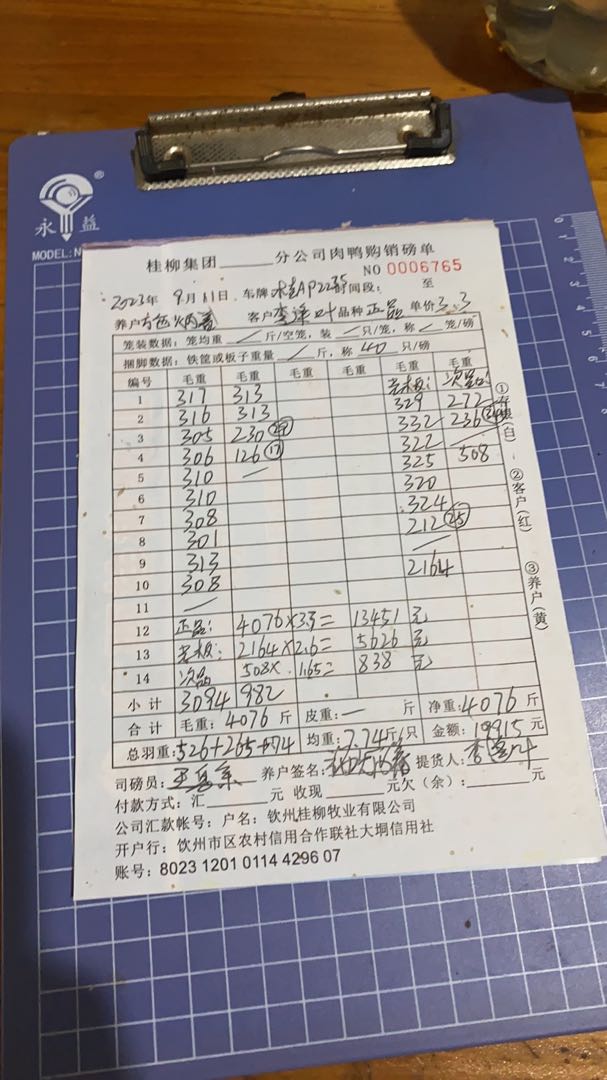 永益®
MODEL:N
桂柳集团______分公司肉鸭购销磅单
NO 0006765
2023年 9月11日 车牌 间段: 至
养户 客户 品种 正品 单价 3.3
笼装数据: 笼均重 / 斤/空笼, 装 / 只/笼, 称 / 笼/磅
捆脚数据: 铁筐或板子重量 / 斤, 称 40 只/磅
编号 毛重 毛重 毛重 毛重 毛重 毛重
老板: 次品:
1 317 313 329 272
2 316 313 332 236
3 305 230 (29) 322 /
4 306 126 (17) 325 508
5 310 / 320
6 310 324
7 308 212 (25)
8 301 /
9 313 2164
10 308
11 /
12 正品: 4076×3.3= 13451 元
13 老板: 2164×2.6= 5626 元
14 次品 508× 1.65= 838 元
小计 3094 982
合计 毛重: 4076 斤 皮重: — 斤 净重: 4076 斤
总羽重: 526+265+74 均重: 7.74 斤/只 金额: 19915 元
司磅员: 养户签名: 提货人:
付款方式: 汇______元 收现______元欠(余):______元
公司汇款帐号: 户名: 钦州桂柳牧业有限公司
开户行: 钦州市区农村信用合作联社大垌信用社
账号: 8023 1201 0114 4296 07
①存根(白)
②客户(红)
③养户(黄)